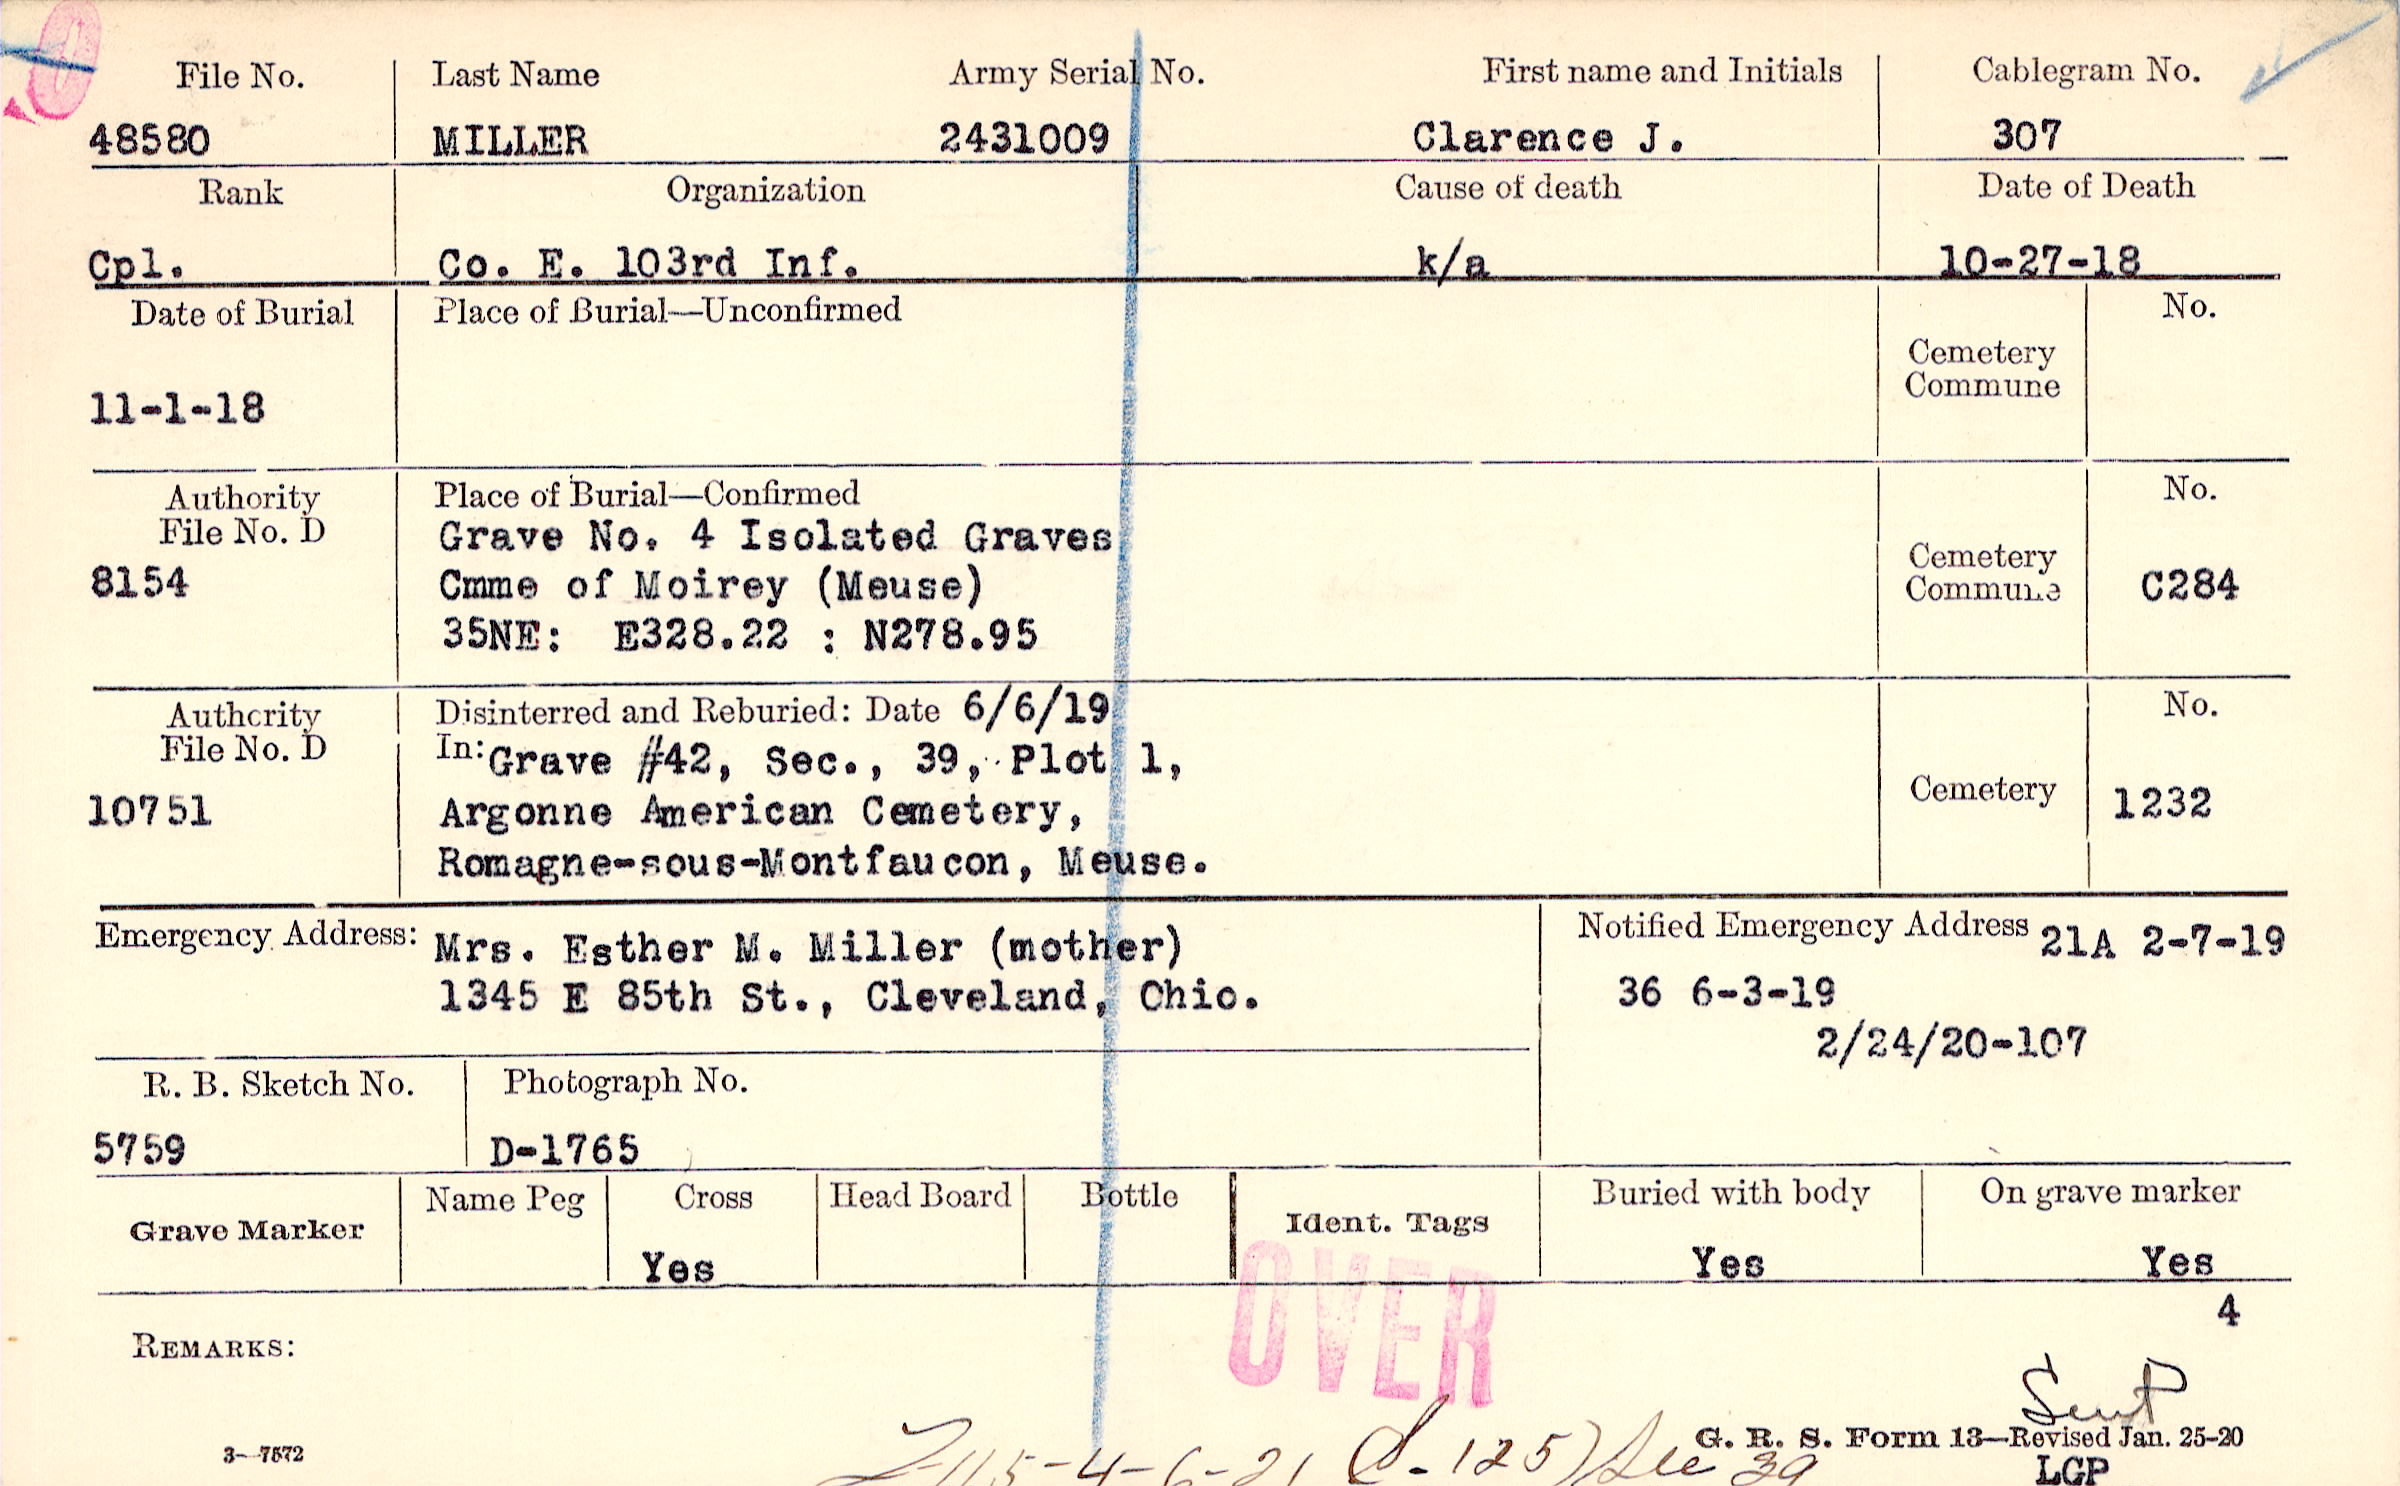 File No. Last Name Army Serial No. First name and Initials Cablegram No.
48580 MILLER 2431009 Clarence J. 307
Rank Organization Cause of death Date of Death
Cpl. Co. E. 103rd Inf. k/a 10-27-18
Date of Burial Place of Burial—Unconfirmed No.
Cemetery
Commune
11-1-18
Authority Place of Burial—Confirmed No.
File No. D Grave No. 4 Isolated Graves
8154 Cmme of Moirey (Meuse) Cemetery Commune C284
35NE: E328.22 : N278.95
Authority Disinterred and Reburied: Date 6/6/19 No.
File No. D In: Grave #42, Sec., 39, Plot 1,
10751 Argonne American Cemetery, Cemetery 1232
Romagne-sous-Montfaucon, Meuse.
Emergency Address: Mrs. Esther M. Miller (mother) Notified Emergency Address 21A 2-7-19
1345 E 85th St., Cleveland, Ohio. 36 6-3-19
2/24/20-107
R. B. Sketch No. Photograph No.
5759 D-1765
Grave Marker Name Peg Cross Head Board Bottle Ident. Tags Buried with body On grave marker
Yes Yes Yes
OVER
4
REMARKS:
Sent
G. R. S. Form 13—Revised Jan. 25-20
3—7572
-4-6-21 (S-125) Sec 39
LGP